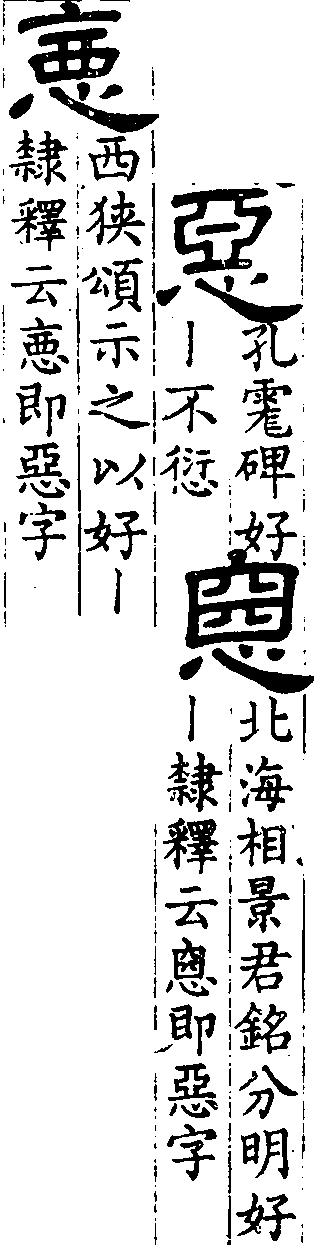 惡
孔碑好
丨不愆
北海相景君銘分明好
丨隸釋云即惡字
西狭頌示之以好丨
隸釋云即惡字